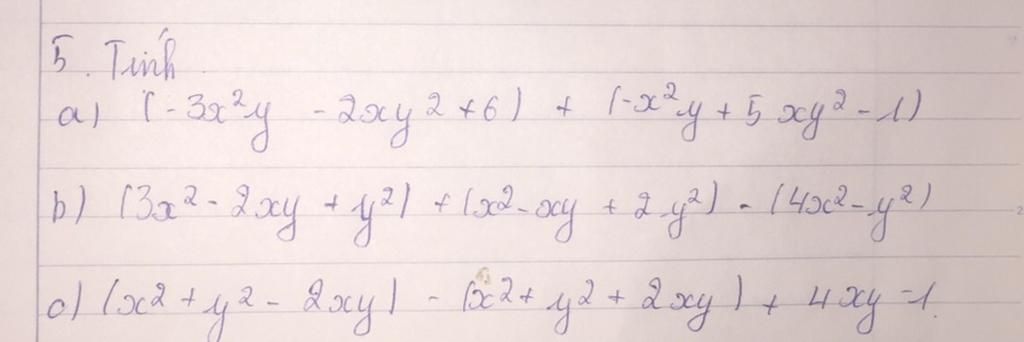 5. Tính
a) (-3x²y - 2xy² + 6) + (-x²y + 5xy² - 1)
b) (3x² - 2xy + y²) + (x² - xy + 2y²) - (4x² - y²)
c) (x² + y² - 2xy) - (x² + y² + 2xy) + 4xy - 1.